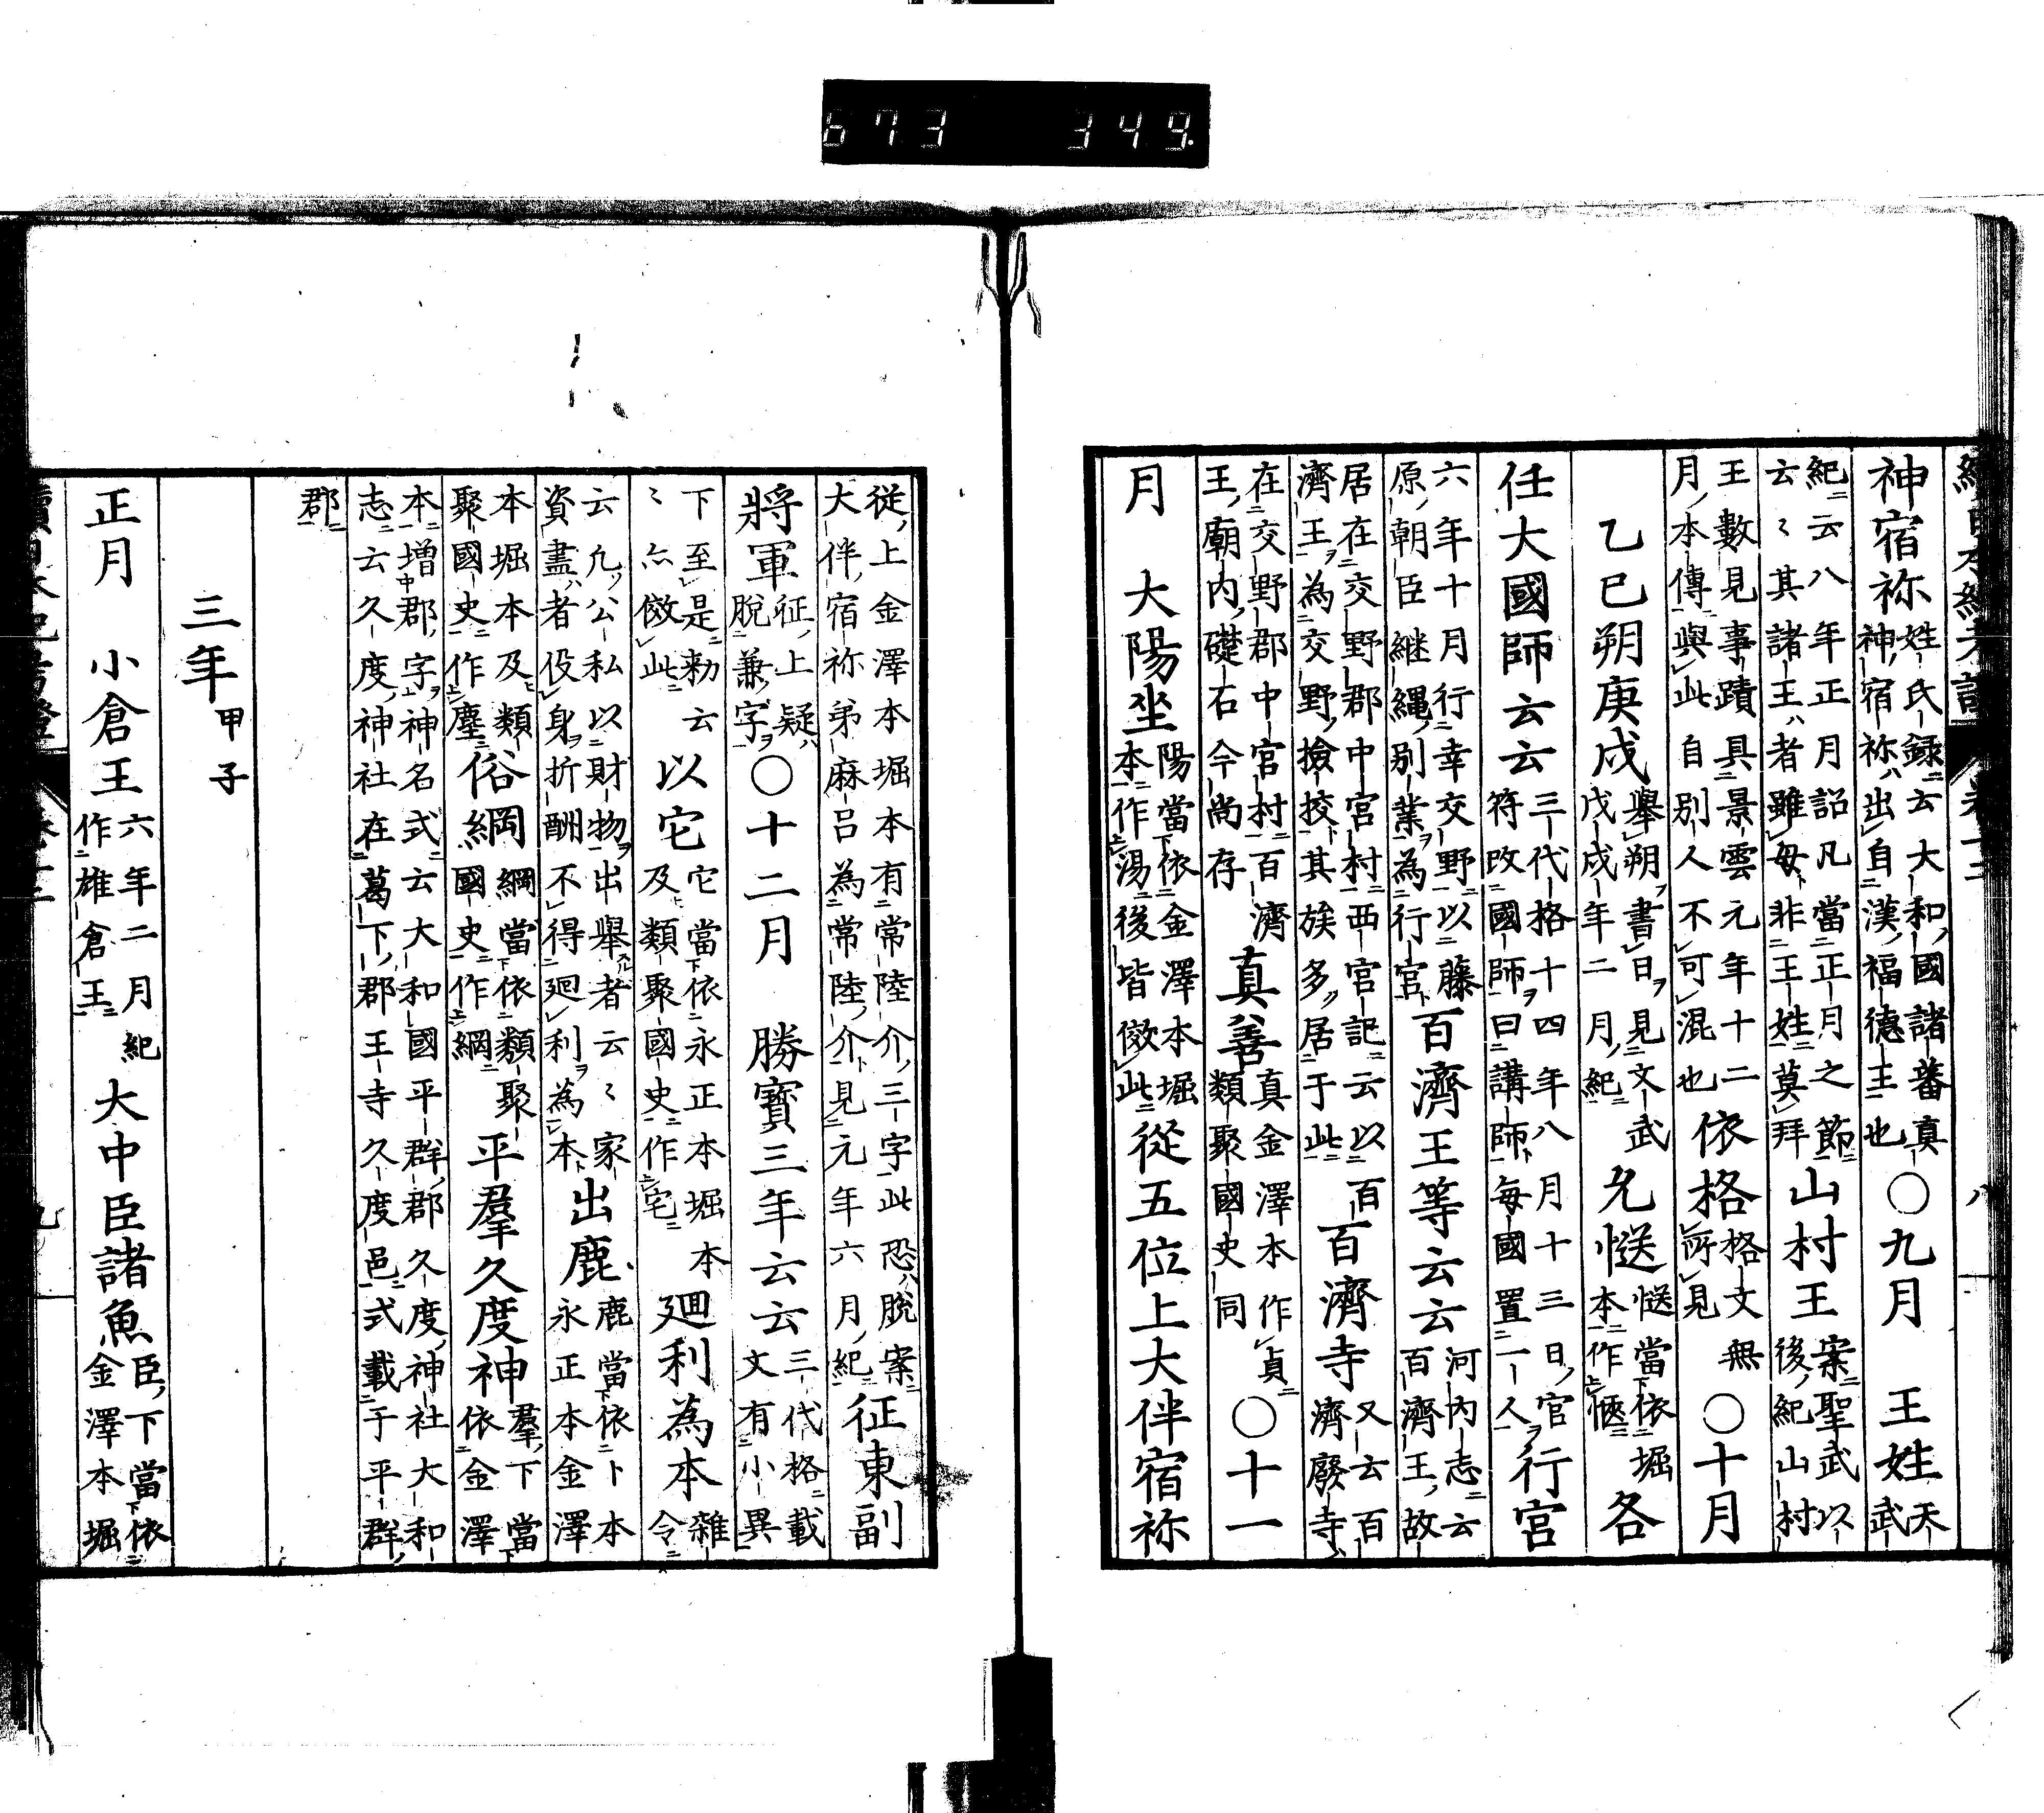 神宿祢姓氏録云大和國諸蕃真神宿祢出自漢福德王也○九月　王姓天武
紀云八年正月詔凡當正月之節云〻其諸王者雖母非王姓莫拜山村王案聖武以後紀山村
王數見事蹟具景雲元年十二月本傳與此自別人不可混也依格格文無所見○十月
乙巳朔庚戌舉朔書日見文武戊戌年二月紀允㥦㥦當依堀本作愜各
任大國師云云三代格十四年八月十三日官符改國師曰講師每國置一人行宮
六年十月行幸交野以藤原朝臣継縄別業為行宮百濟王等云云河内志云百濟王故
居在交野郡中宮村西宮記云以百濟王為交野撿挍其族多居于此百濟寺又云百濟廢寺
在交野郡中宮村百濟王廟内礎石今尚存真善真金澤本作貞類聚國史同○十一
月　大陽坐陽當依金澤本堀本作湯後皆傚此從五位上大伴宿祢
從上金澤本堀本有常陸介三字此恐脫案大伴宿祢弟麻呂為常陸介見元年六月紀征東副
將軍征上疑脫兼字○十二月　勝寶三年云云三代格載文有小異
下至是勅云〻亦傚此以宅宅當依永正本堀本及類聚國史作宅廻利為本雜令
云凡公私以財物出舉者云〻家資盡者役身折酬不得廻利為本出鹿鹿當依卜本永正本金澤
本堀本及類聚國史作塵俗綱綱當依類聚國史作網平羣久度神羣下當依金澤
本増郡字神名式云大和國平群郡久度神社大和志云久度神社在葛下郡王寺久度邑式載于平群
郡
三年甲子
正月　小倉王六年二月紀作雄倉王大中臣諸魚臣下當依金澤本堀
673 349